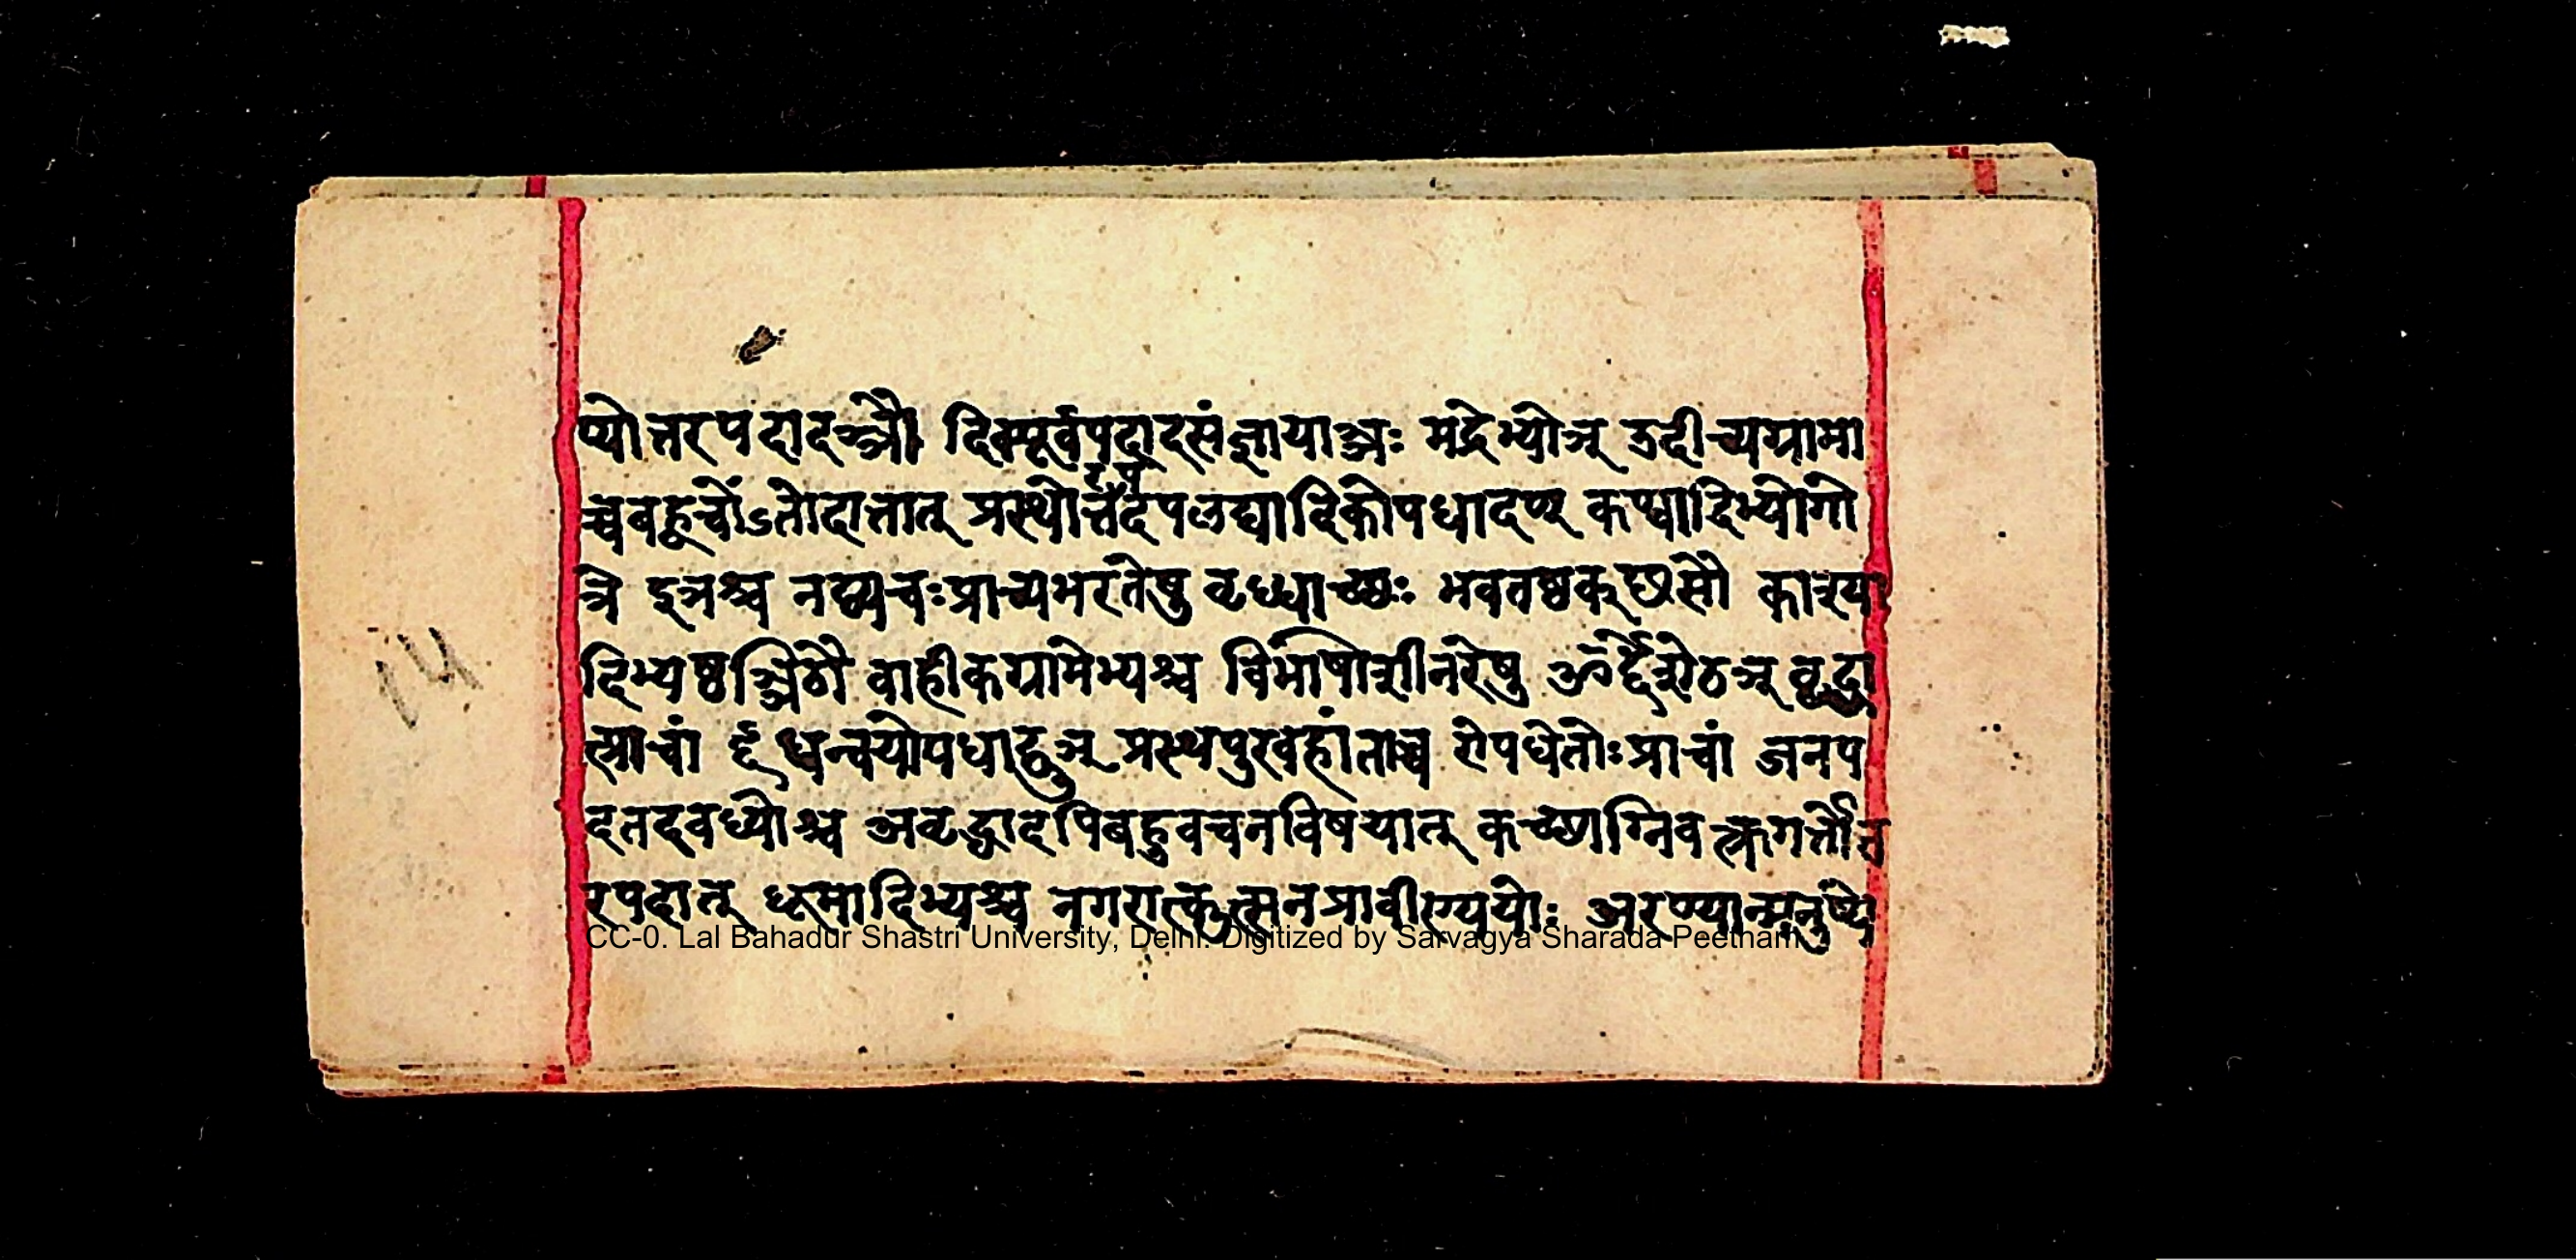 प्योत्तरपदादञ्ञौ दिक्पूर्वपदादसंज्ञायाञ्ञः मद्रेभ्योञ् उदीच्यग्रामा
च्चबह्वचोंऽतोदात्तात् प्रस्थोत्तरपदपलद्यादिकोपधादण् कण्वादिभ्योगो
त्रे इञश्च नद्व्यचःप्राच्यभरतेषु वृध्धाच्छः भवतष्ठक्छसौ काश्या
दिभ्यष्ठञ्ञिठौ वाहीकग्रामेभ्यश्च विभाषोशीनरेषु ओर्द्देशेठञ् वृद्धा
त्प्राचां धन्वयोपधाद्वुञ् प्रस्थपुरवहांताच्च रोपधेतोःप्राचां जनप
दतदवध्योश्च अवृद्धादपिबहुवचनविषयात् कच्छाग्निवक्त्रगर्तोत्त
रपदात् धूमादिभ्यश्च नगरात्कुत्सनप्रावीण्ययोः अरण्यान्मनुष्ये
CC-0. Lal Bahadur Shastri University, Delhi. Digitized by Sarvagya Sharada Peetham